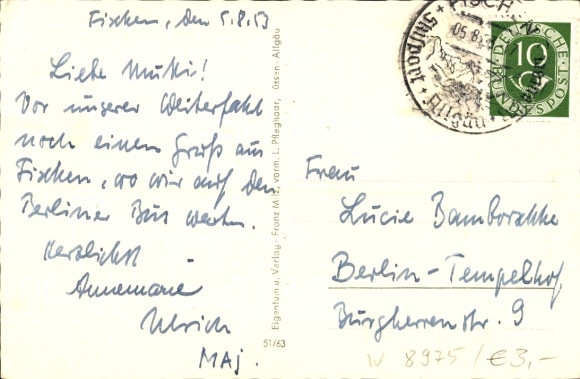 Fischen, den 5.8.53
Liebe Mutti!
Vor unserer Weiterfahrt
noch einen Gruß aus
Fischen, wo wir auf den
Berliner Bus warten.
Herzlichst
Annemarie
Ulrich
MAJ.
Eigentum u. Verlag: Franz Milz, vorm. L. Pfleghaar, Füssen-Allgäu
51/63
FISCHEN
05.8.53
Allgäu
DEUTSCHE BUNDESPOST
10
Frau
Lucie Bamborschke
Berlin-Tempelhof,
Burgherrenstr. 9
W 8975/€3,-